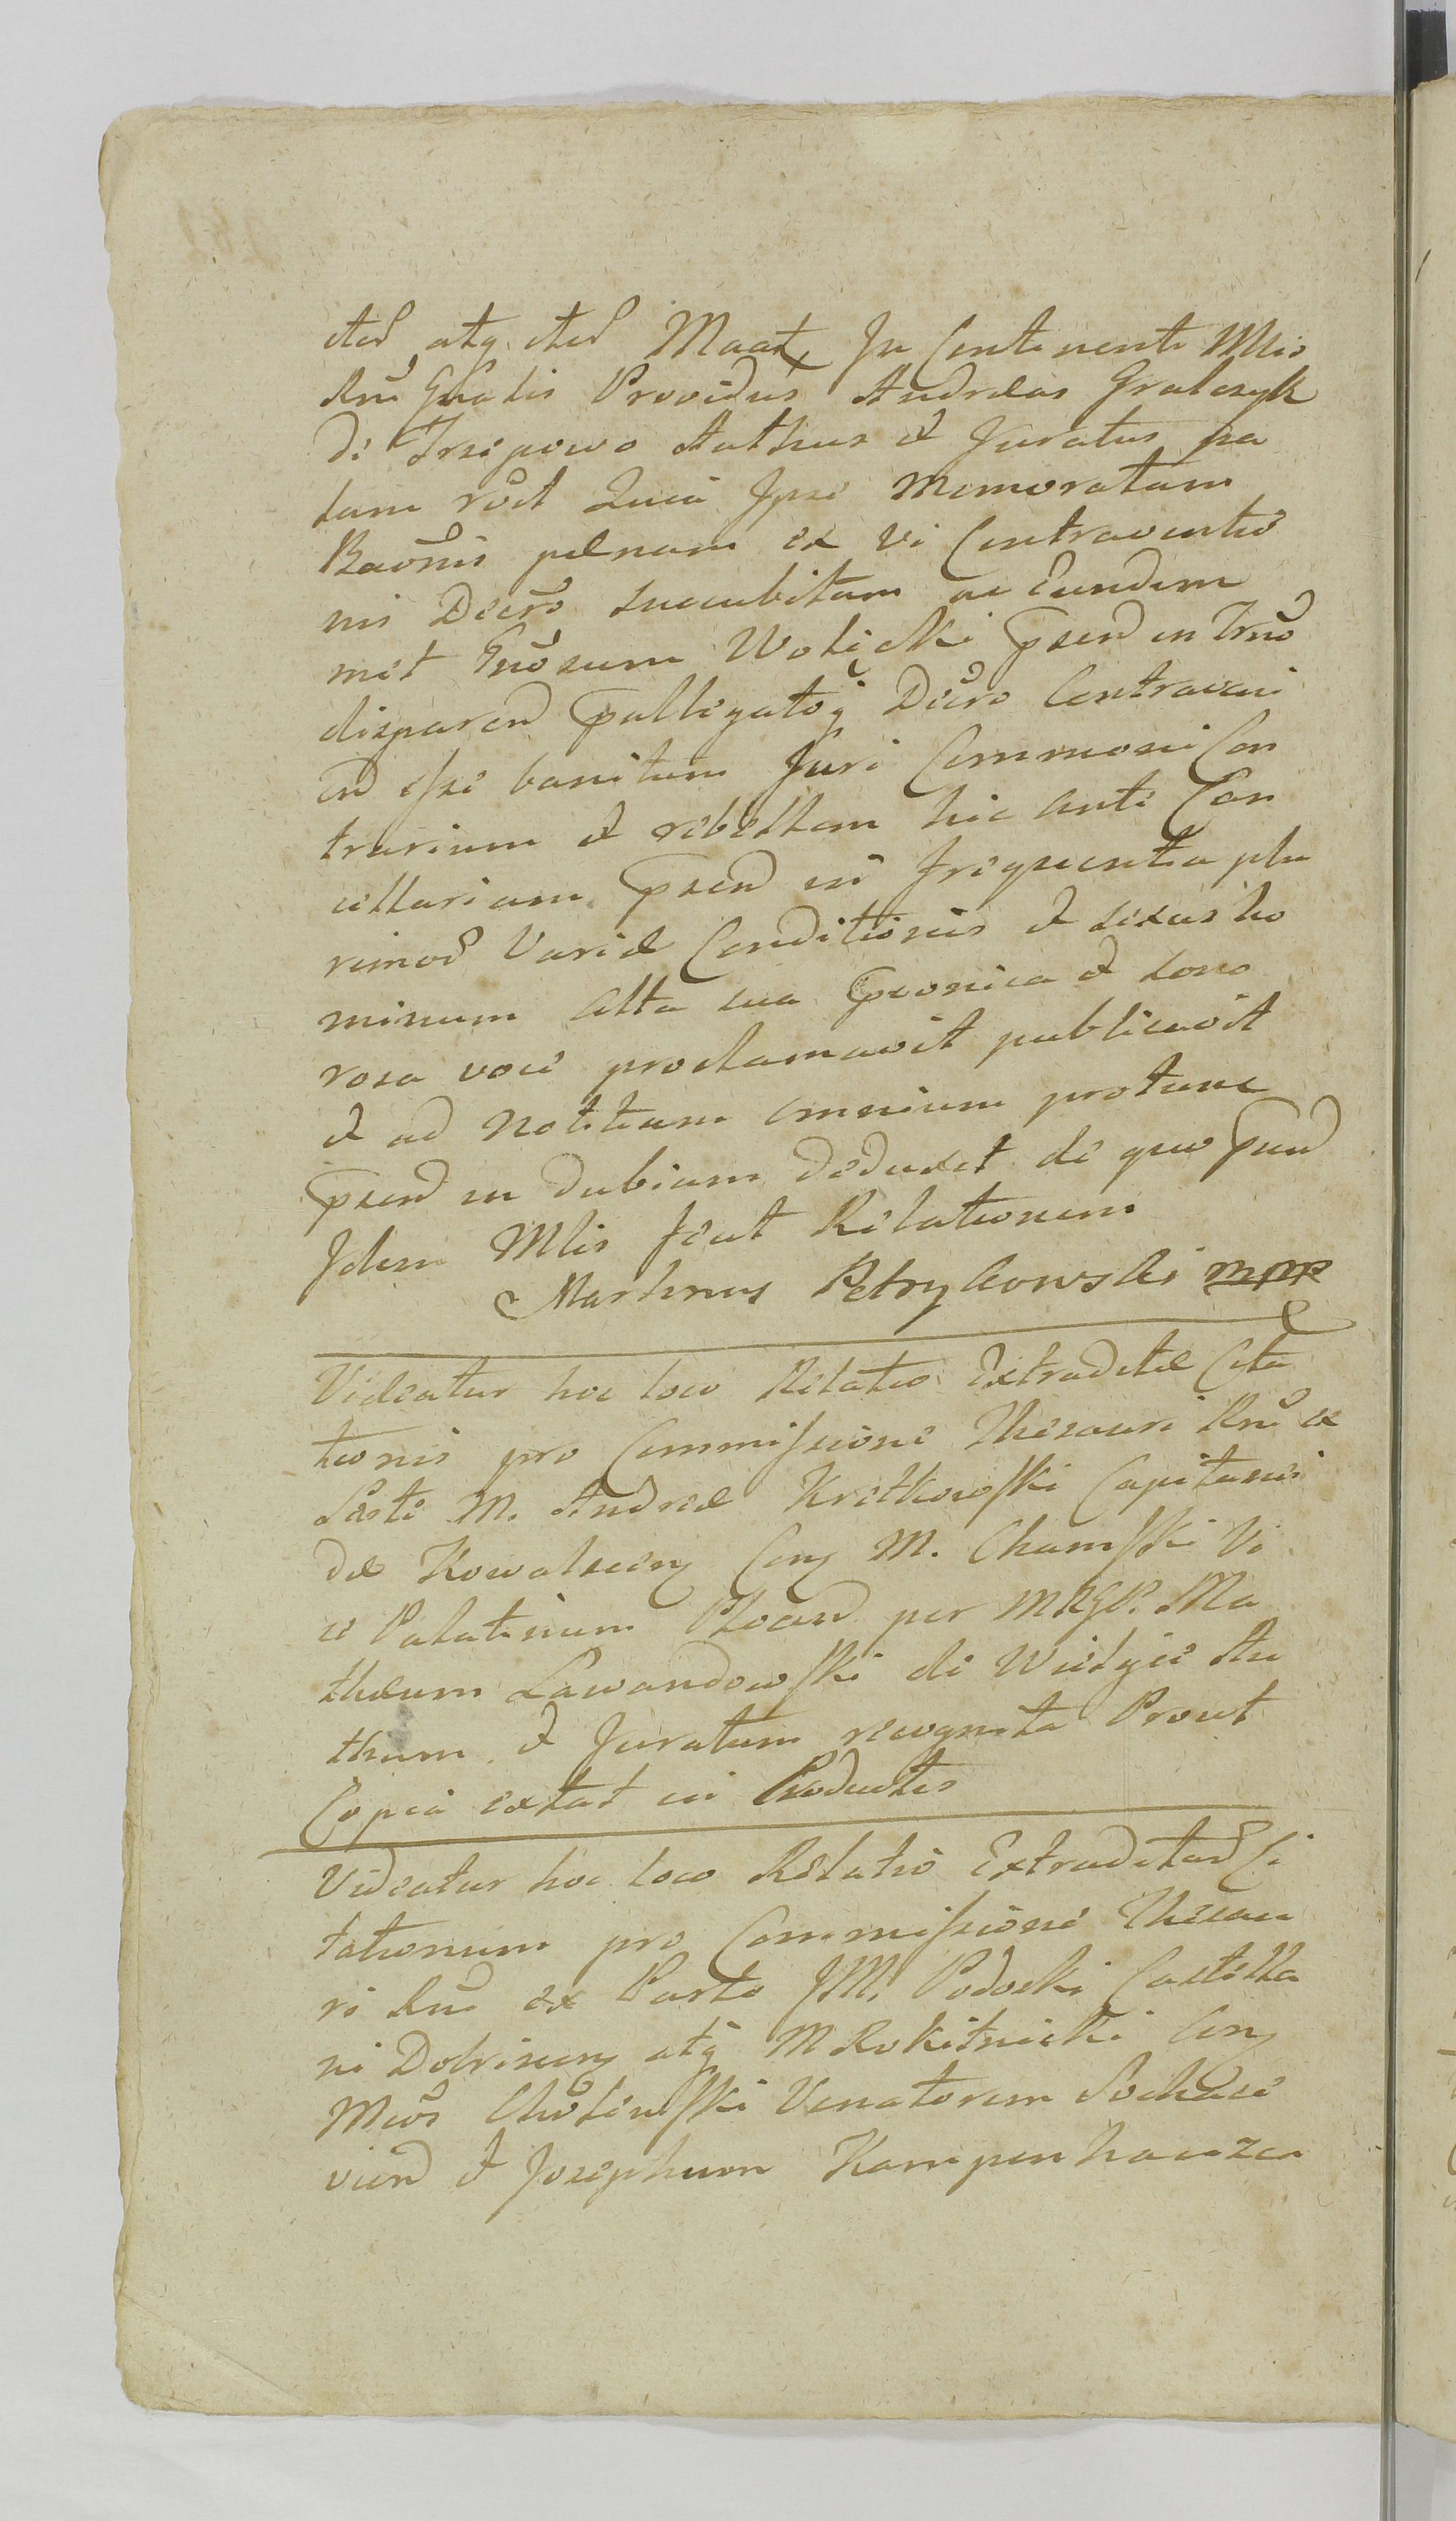 atq Maat, In Continenti Mlis
Rni Gnalis Providus Andreas Gralczyk
de Trzepowo Authus et Juratus pa
lam rődt Quia Ipse Memoratam
Baõnis pænam ex vi Contraventio
nis Decrŏ succubitam ac Eundem
met Gnŏsum Wolicki psend in Trnŏ
disparend palligatoq Dĕcro Contraveni
end esse banitum Juri Communi Con
trarium et rebellem hic ante Can
cellariam psend in frequentia plu
rimod Variæ Conditionis et sexus ho
minum alta sua pconica et sono
rosa voce proclamavit publicavit
et ad Notitiam omnium protunc
psend in dubiam deduxit de quo pnd
Idem Mlis fecit Relationem
Martinus Petrykowski mpr
Videatur hoc loco Relatio Extraditæ Cita
tionis pro Commissione Thesauri Rni ex
Parte M. Andreæ Kretkowski Capitanei
de Kowalscieng Cong M. Chamski Vi
ce Palatinum Plocend per MRGP. Ma
theum Lewandowski de Wiedyie Au
thum et Juratum recognita Prout
Copia extat in Productis
Videatur hoc loco Relatio Extraditad Ci
tationum pro Commissione Thesau
ri Rni ex Parte JM. Podoski Castella
ni Dobrineng atq M Rokitnicki Cong
Meos Venatorem Sochace
viend et Josephum Kampenhauzen